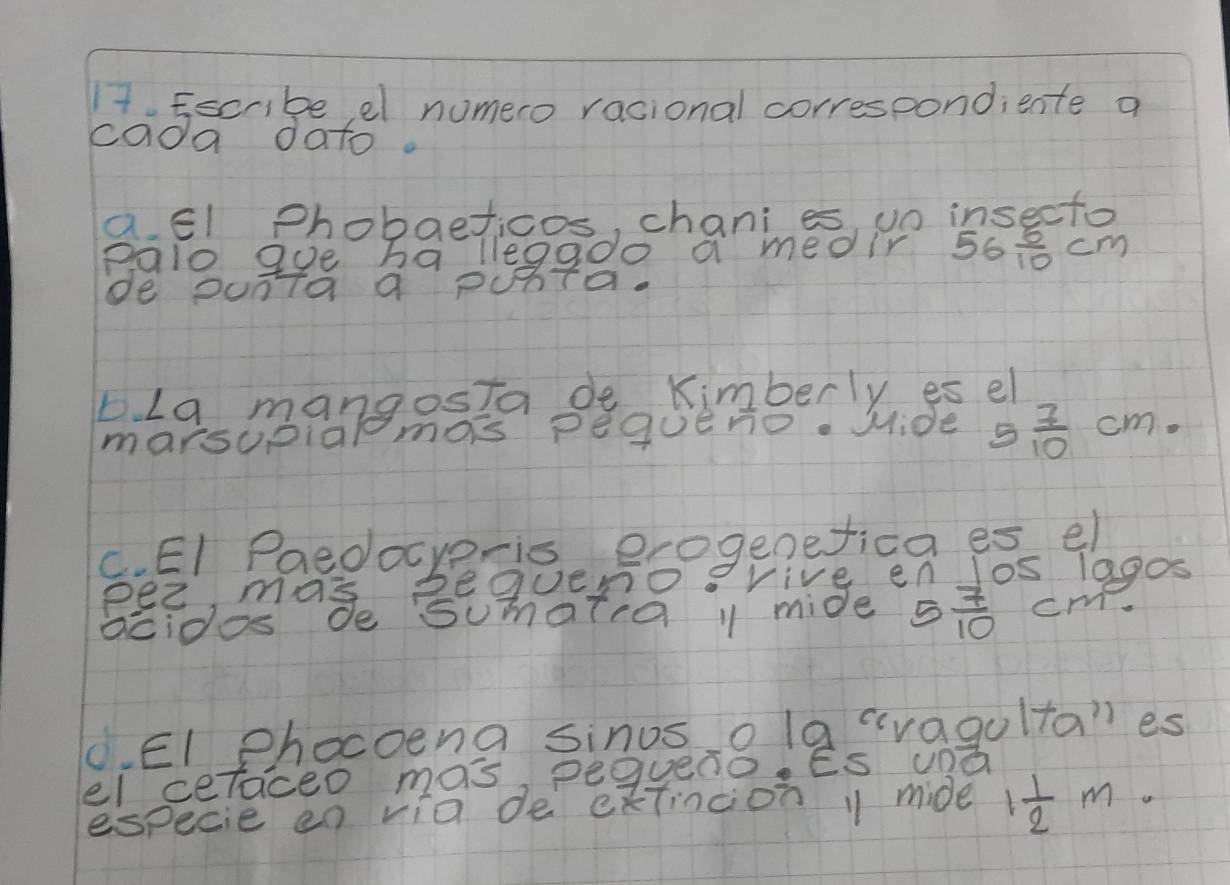 17. Escribe el numero racional correspondiente a
cada dato.
a. El Phobaeticos, chani es un insecto
palo que ha llegado a medir 56 6/10 cm
de punta a punta.
b. La mangosta de Kimberly es el
marsupial mas pequeño. Mide 5 7/10 cm.
c. El Paedocypris progenetica es el
pez mas pequeño. vive en los lagos
acidos de Sumatra y mide 5 7/10 cm.
d. El phocoena sinus o la "vaqulta" es
el cetaceo mas pequeño. Es una
especie en vía de extincion y mide 1 1/2 m.